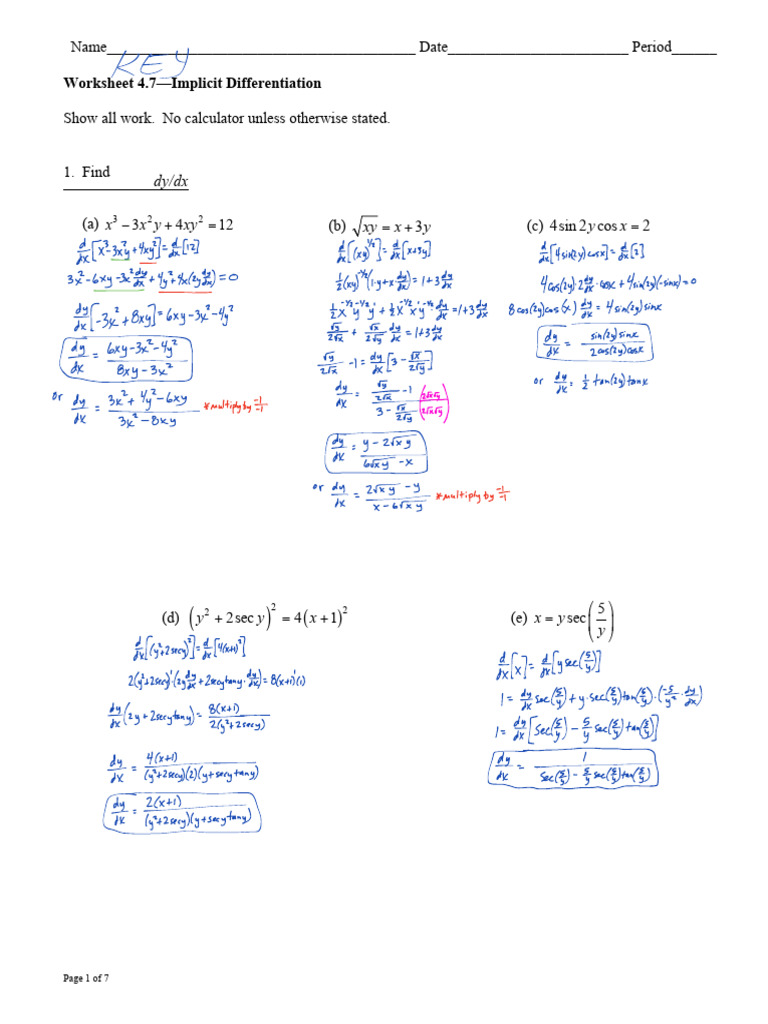 Name_____________________________________ Date______________________ Period______
KEY
Worksheet 4.7—Implicit Differentiation
Show all work. No calculator unless otherwise stated.
1. Find dy/dx
(a) x³ − 3x²y + 4xy² = 12
d/dx[x³ − 3x²y + 4xy²] = d/dx[12]
3x² − 6xy − 3x² dy/dx + 4y² + 4x(2y dy/dx) = 0
dy/dx[−3x² + 8xy] = 6xy − 3x² − 4y²
dy/dx = (6xy − 3x² − 4y²)/(8xy − 3x²)
or dy/dx = (3x² + 4y² − 6xy)/(3x² − 8xy) *multiply by −1/−1
(b) √xy = x + 3y
d/dx[(xy)^1/2] = d/dx[x+3y]
1/2(xy)^−1/2(1·y + x dy/dx) = 1 + 3 dy/dx
1/2 x^−1/2 y^−1/2 y¹ + 1/2 x¹ x^−1/2 y^−1/2 dy/dx = 1 + 3 dy/dx
√y/2√x + √x/2√y dy/dx = 1 + 3 dy/dx
√y/2√x − 1 = dy/dx[3 − √x/2√y]
dy/dx = (√y/2√x − 1)/(3 − √x/2√y) (2√x√y/2√x√y)
dy/dx = (y − 2√xy)/(6√xy − x)
or dy/dx = (2√xy − y)/(x − 6√xy) *multiply by −1/−1
(c) 4sin2ycosx = 2
d/dx[4sin(2y)cosx] = d/dx[2]
4cos(2y)·2 dy/dx·cosx + 4sin(2y)(−sinx) = 0
8cos(2y)cos(x) dy/dx = 4sin(2y)sinx
dy/dx = sin(2y)sinx/2cos(2y)cosx
or dy/dx = 1/2 tan(2y)tanx
(d) (y² + 2sec y)² = 4(x + 1)²
d/dx[(y²+2secy)²] = d/dx[4(x+1)²]
2(y²+2secy)¹·(2y dy/dx + 2secytany·dy/dx) = 8(x+1)¹(1)
dy/dx(2y + 2secytany) = 8(x+1)/2(y²+2secy)
dy/dx = 4(x+1)/(y²+2secy)(2)(y+secytany)
dy/dx = 2(x+1)/(y²+2secy)(y+secytany)
(e) x = y sec(5/y)
d/dx[x] = d/dx[y sec(5/y)]
1 = dy/dx sec(5/y) + y·sec(5/y)tan(5/y)·(−5/y²·dy/dx)
1 = dy/dx[sec(5/y) − 5/y sec(5/y)tan(5/y)]
dy/dx = 1/(sec(5/y) − 5/y sec(5/y)tan(5/y))
Page 1 of 7